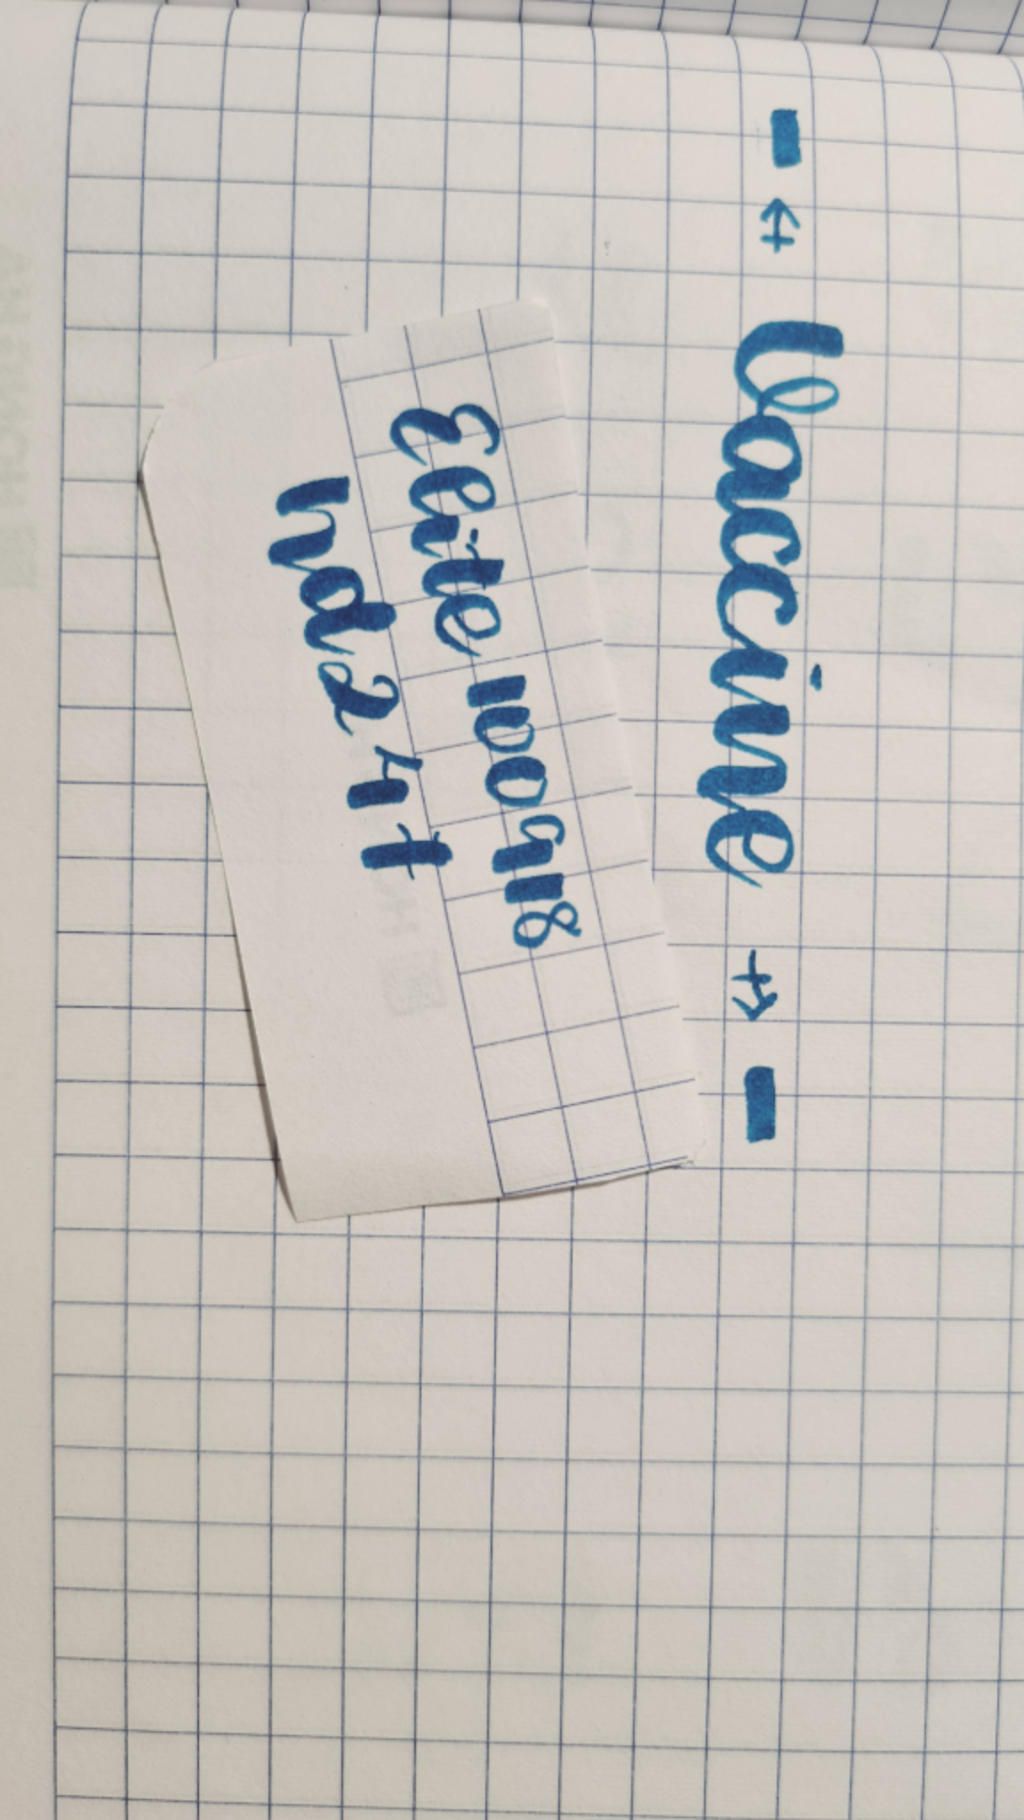 - ← Vaccine → -
Elite 100918
hd24t